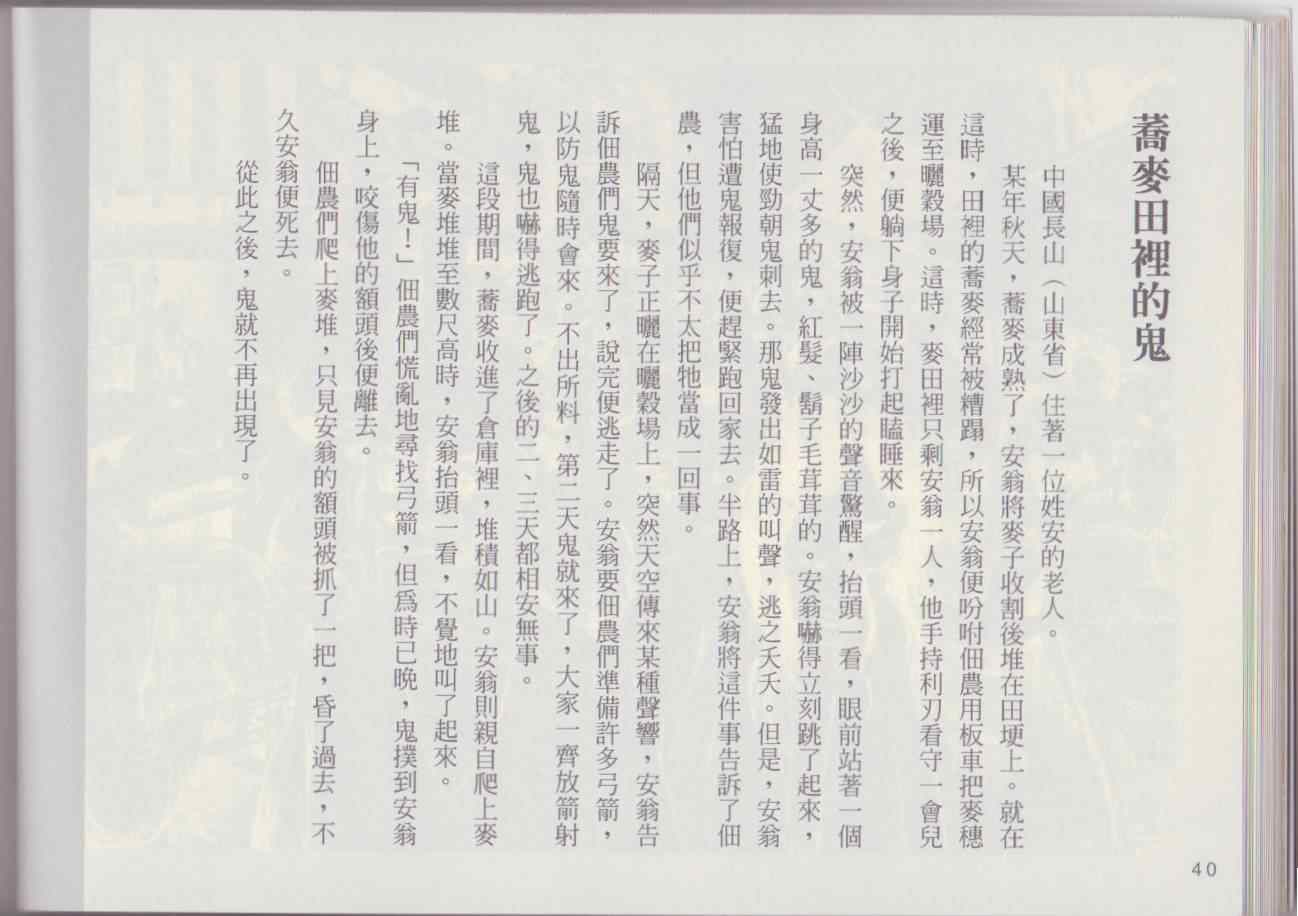 蕎麥田裡的鬼
中國長山（山東省）住著一位姓安的老人。
某年秋天，蕎麥成熟了，安翁將麥子收割後堆在田埂上。就在
這時，田裡的蕎麥經常被糟蹋，所以安翁便吩咐佃農用板車把麥穗
運至曬穀場。這時，麥田裡只剩安翁一人，他手持利刃看守一會兒
之後，便躺下身子開始打起瞌睡來。
突然，安翁被一陣沙沙的聲音驚醒，抬頭一看，眼前站著一個
身高一丈多的鬼，紅髮、鬍子毛茸茸的。安翁嚇得立刻跳了起來，
猛地使勁朝鬼刺去。那鬼發出如雷的叫聲，逃之夭夭。但是，安翁
害怕遭鬼報復，便趕緊跑回家去。半路上，安翁將這件事告訴了佃
農，但他們似乎不太把牠當成一回事。
隔天，麥子正曬在曬穀場上，突然天空傳來某種聲響，安翁告
訴佃農們鬼要來了，說完便逃走了。安翁要佃農們準備許多弓箭，
以防鬼隨時會來。不出所料，第二天鬼就來了，大家一齊放箭射
鬼，鬼也嚇得逃跑了。之後的二、三天都相安無事。
這段期間，蕎麥收進了倉庫裡，堆積如山。安翁則親自爬上麥
堆。當麥堆堆至數尺高時，安翁抬頭一看，不覺地叫了起來。
「有鬼！」佃農們慌亂地尋找弓箭，但為時已晚，鬼撲到安翁
身上，咬傷他的額頭後便離去。
佃農們爬上麥堆，只見安翁的額頭被抓了一把，昏了過去，不
久安翁便死去。
從此之後，鬼就不再出現了。
40